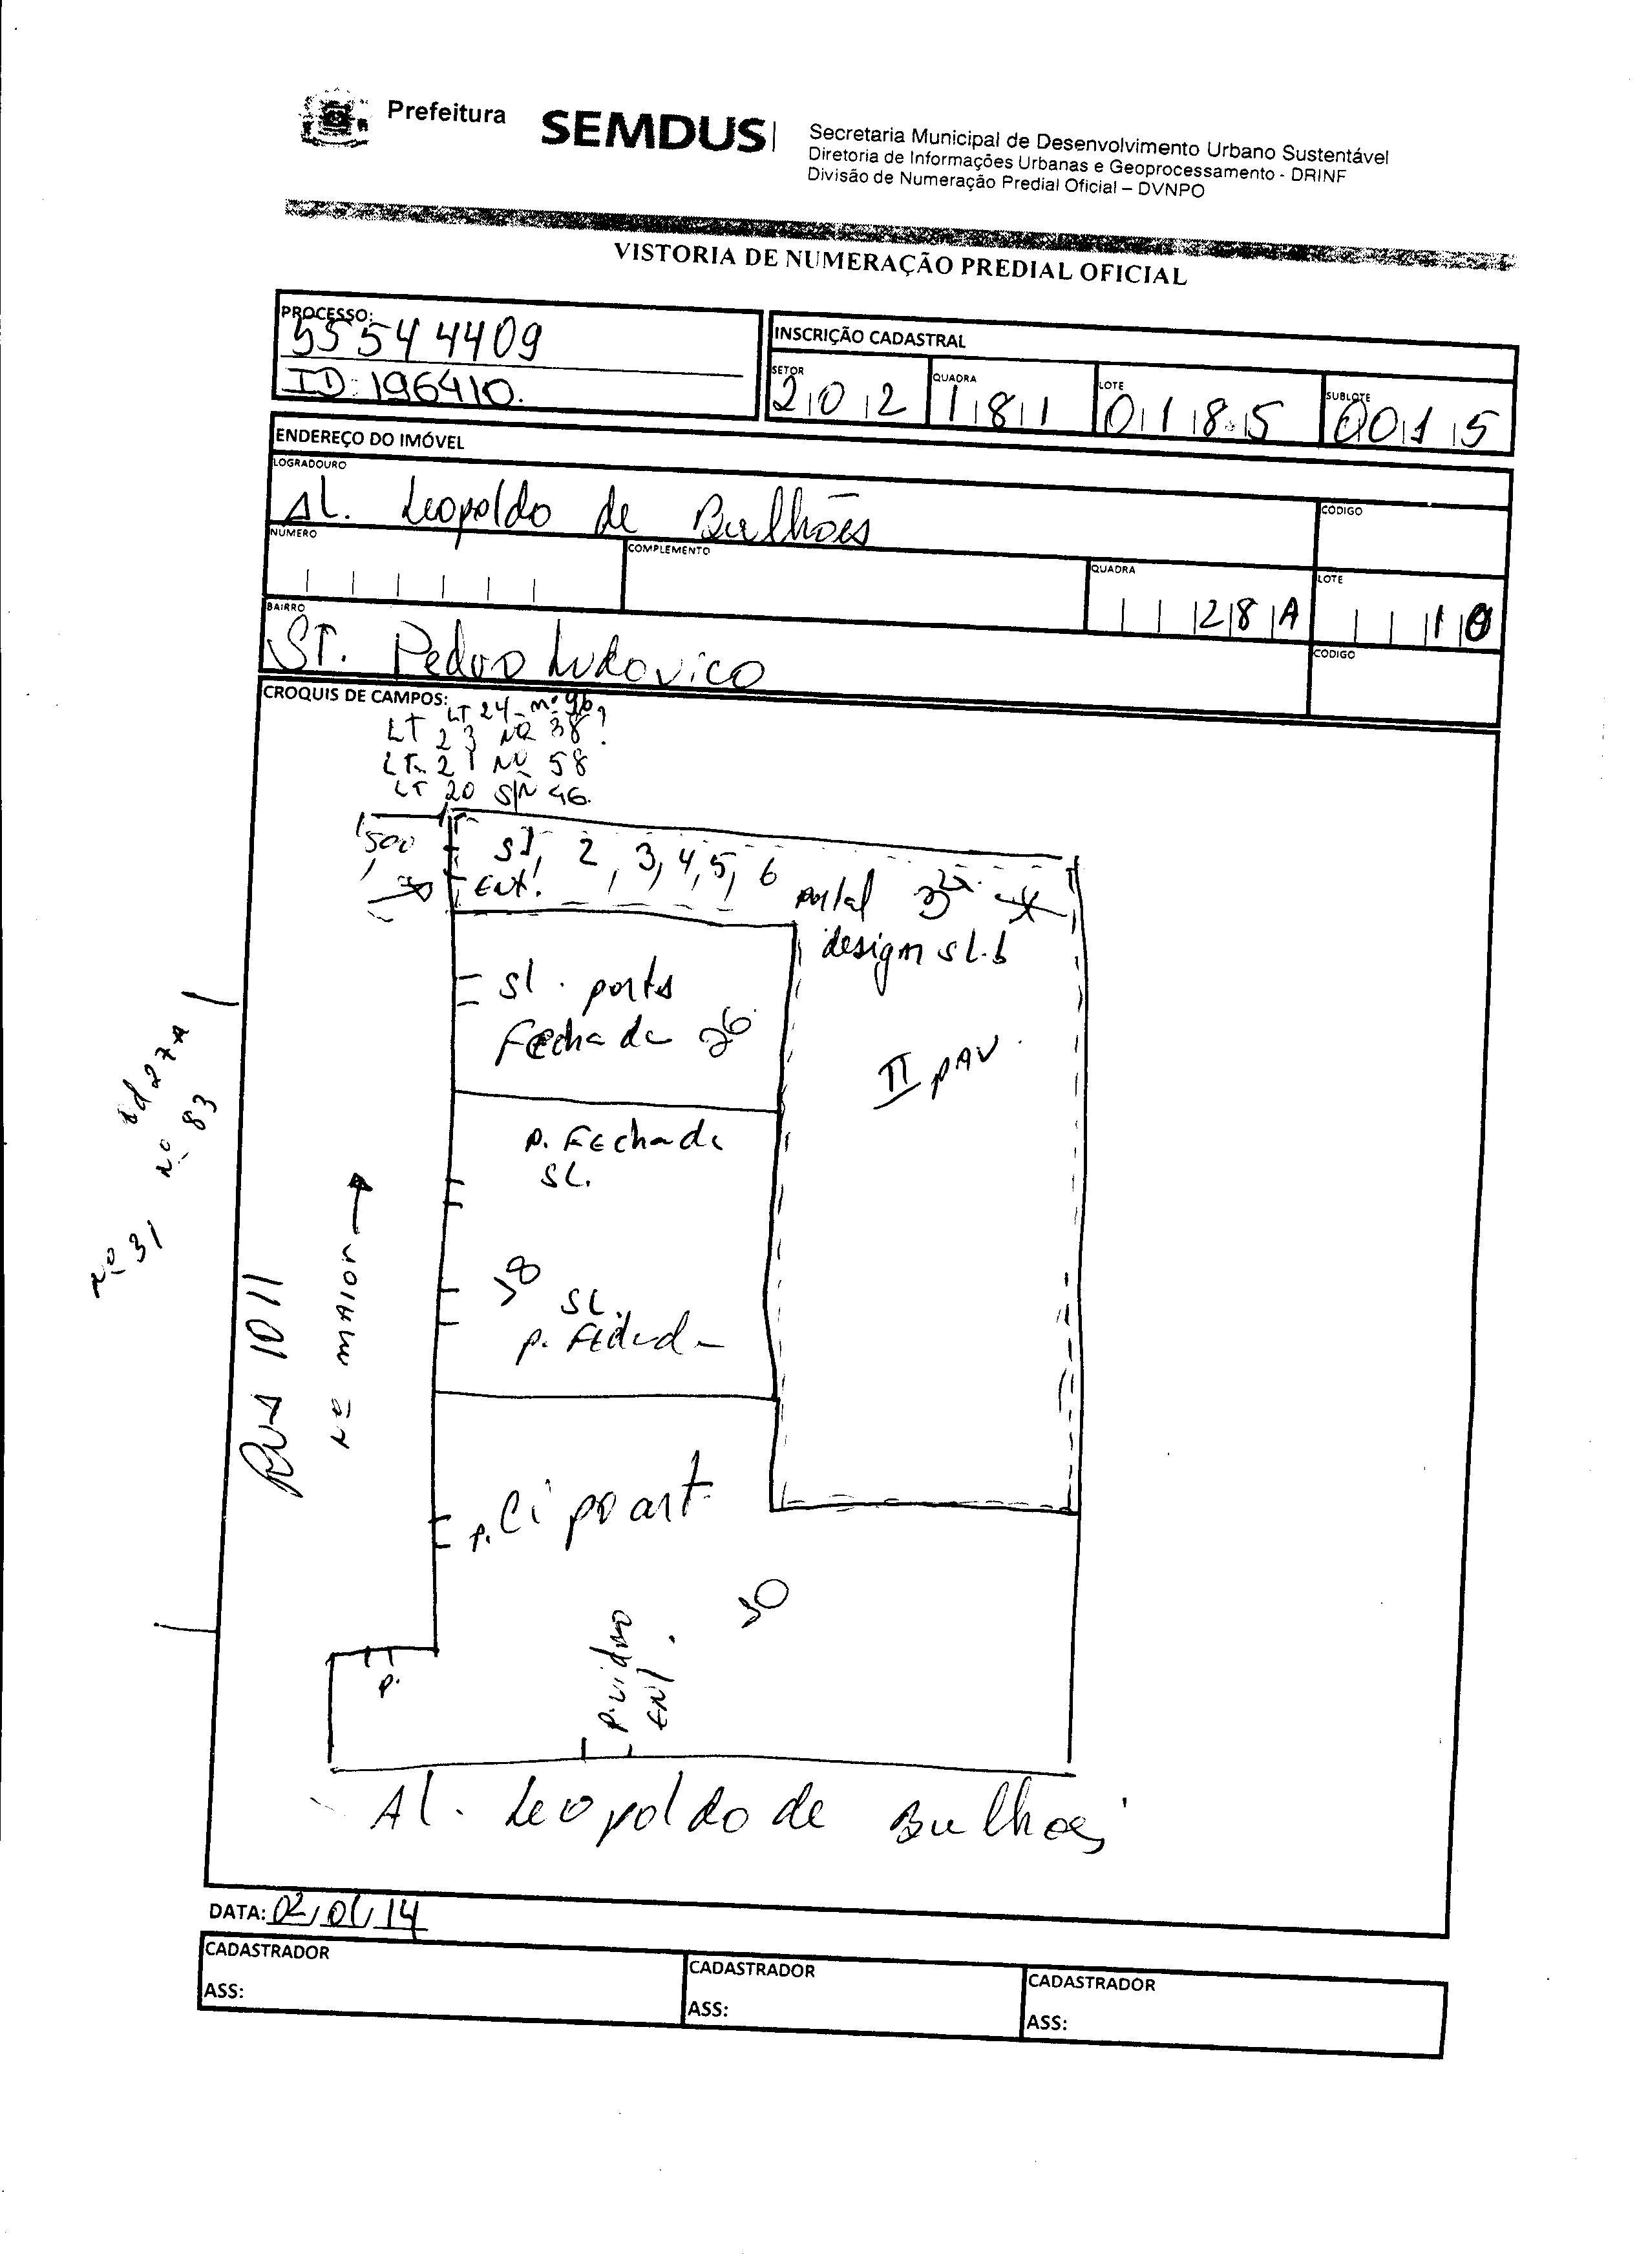 Prefeitura SEMDUS
Secretaria Municipal de Desenvolvimento Urbano Sustentável
Diretoria de Informações Urbanas e Geoprocessamento - DRINF
Divisão de Numeração Predial Oficial – DVNPO
VISTORIA DE NUMERAÇÃO PREDIAL OFICIAL
PROCESSO:
55544409
ID: 196410.
INSCRIÇÃO CADASTRAL
SETOR 202 QUADRA 181 LOTE 0185 SUBLOTE 0015
ENDEREÇO DO IMÓVEL
LOGRADOURO
Al. Leopoldo de Bulhões
CÓDIGO
NÚMERO
COMPLEMENTO
QUADRA
28A
LOTE
10
BAIRRO
ST. Pedro Ludovico
CÓDIGO
CROQUIS DE CAMPOS:
LT 24 - nº 96
LT 23 Nº 38?
LT. 21 Nº 58
LT 20 S/N 46.
500
SL, 2, 3, 4, 5, 6
Ent!
portal
design SL.6
SL. porta
Fechada 26
II PAV.
P. Fechada
SL.
38
SL.
P. Fechada
Qd 27A
Nº 83
Nº 31
RUA 1011
Nº MAIOR
P. Cipoart
30
P. vidro
ENT.
P.
Al. Leopoldo de Bulhões
DATA: 02/01/14
CADASTRADOR
ASS:
CADASTRADOR
ASS:
CADASTRADOR
ASS: